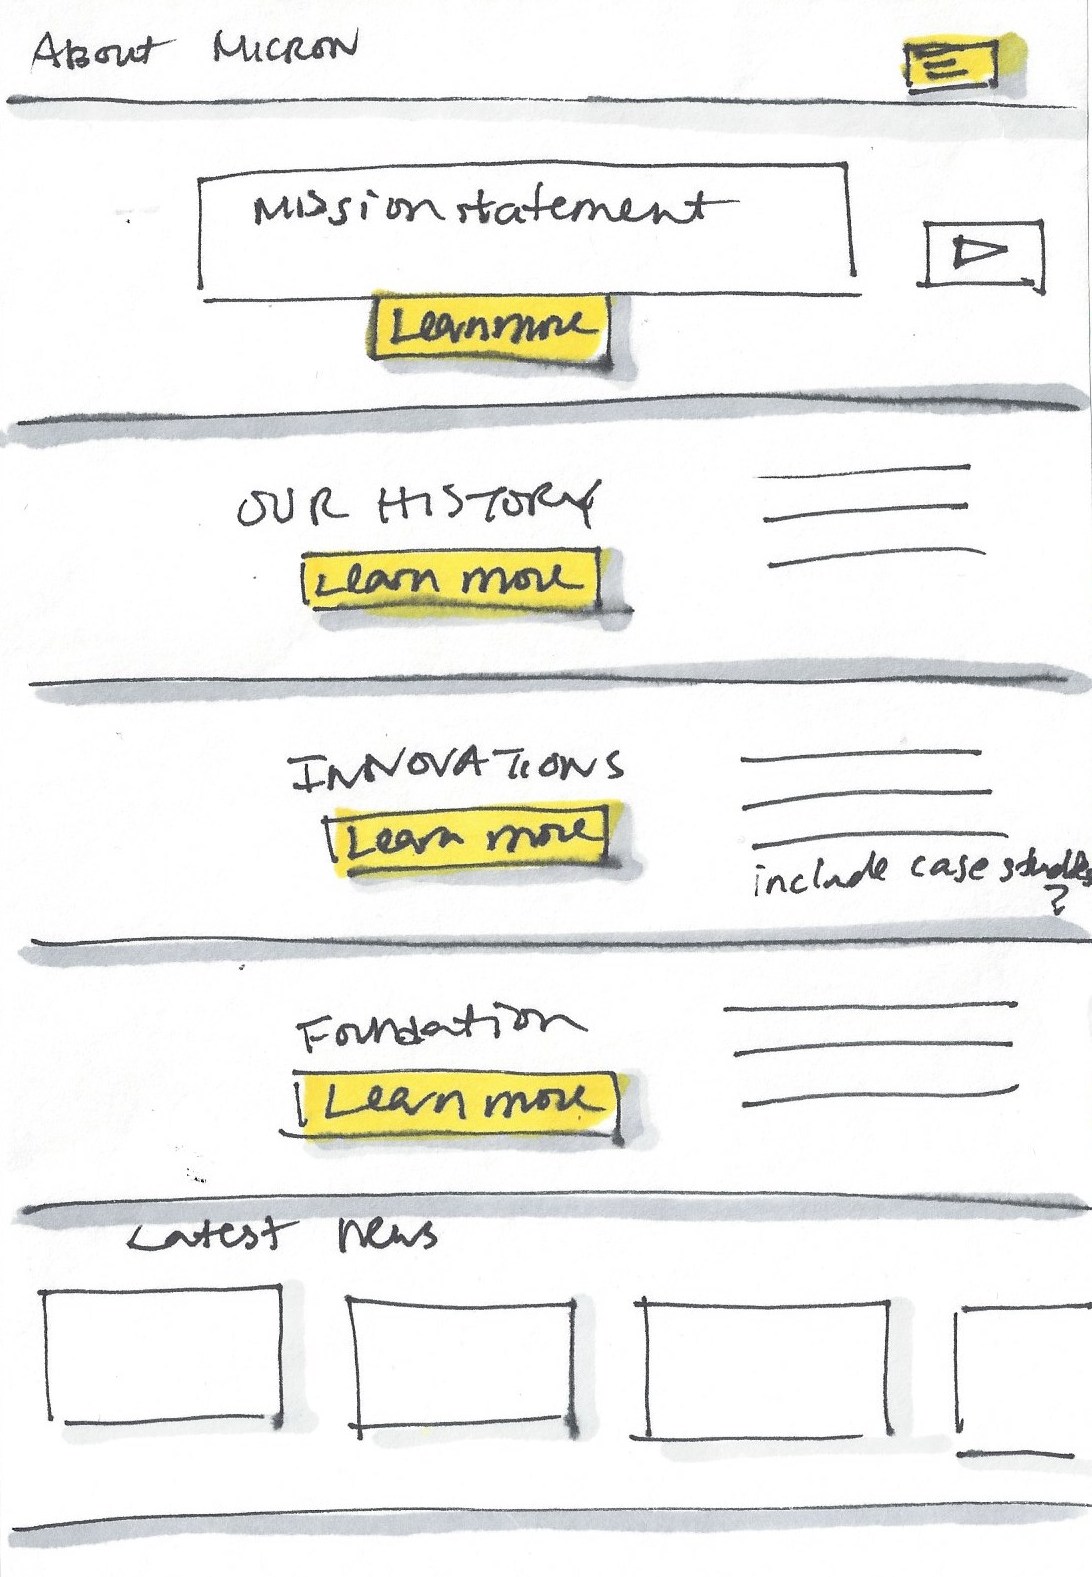 About MICRON
Mission statement
Learn more
OUR HISTORY
Learn more
INNOVATIONS
Learn more
include case studies
?
Foundation
Learn more
Latest news